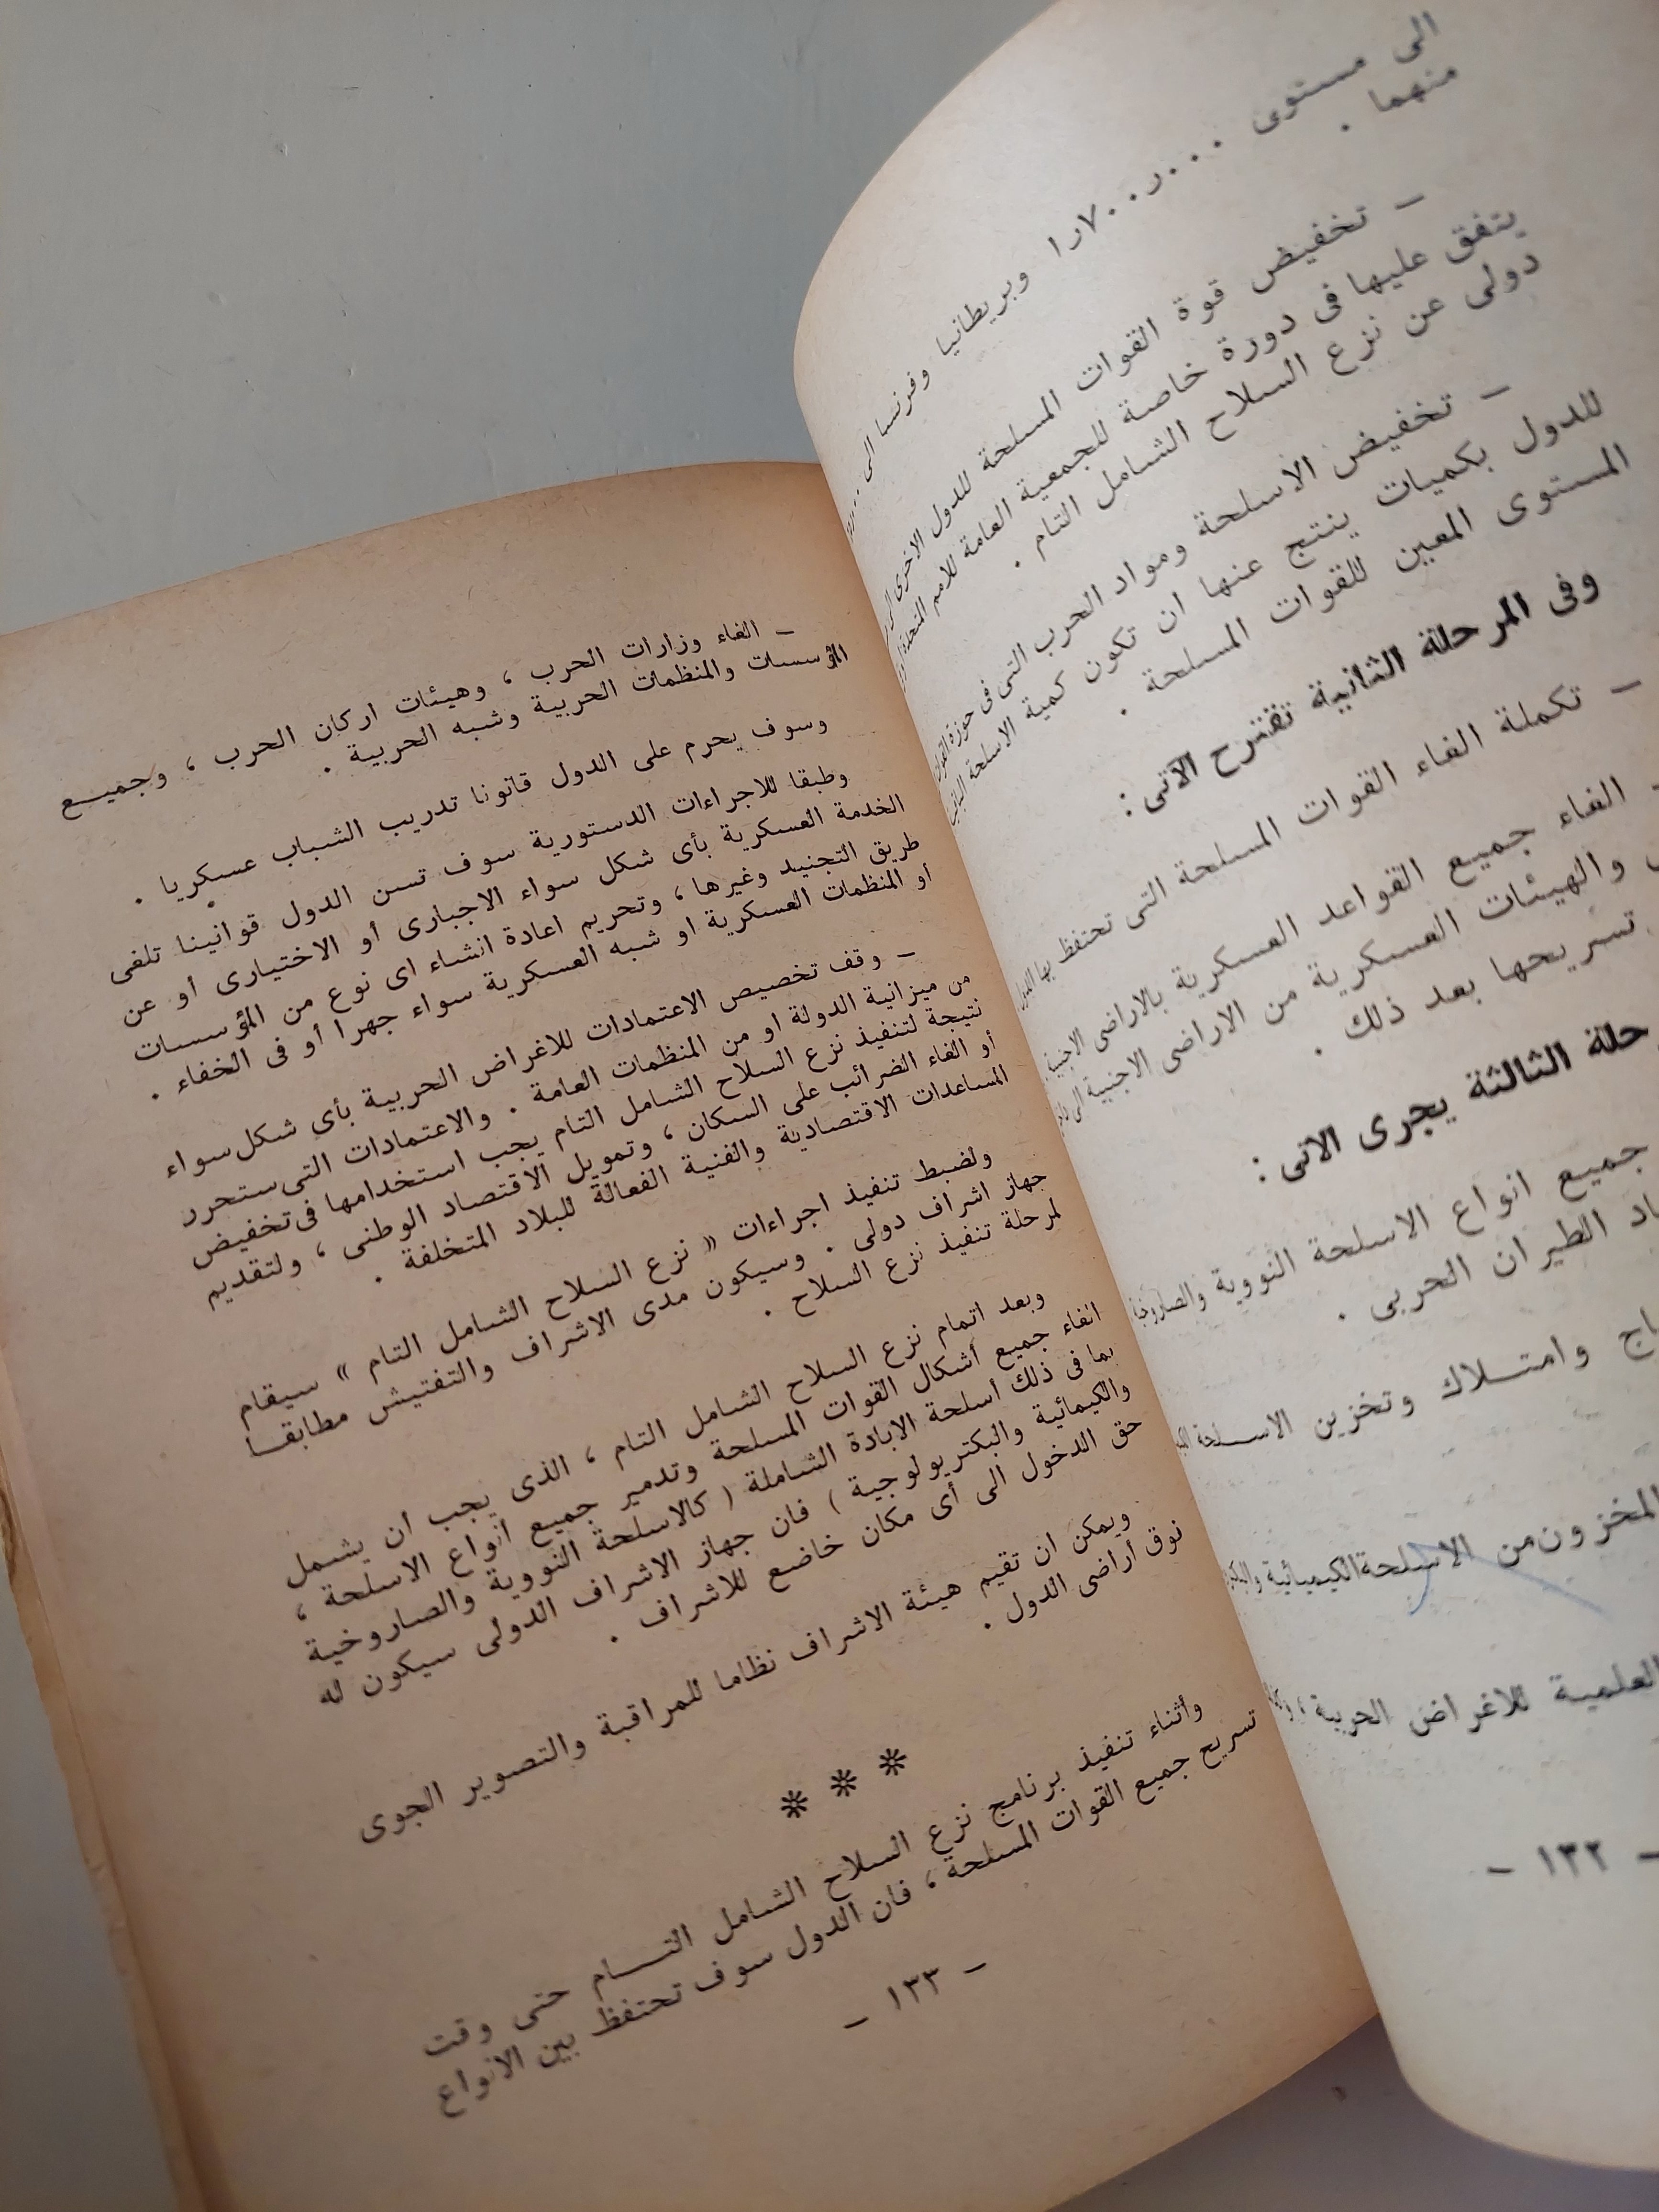 الى مستوى ٠٠٠ر٧٠٠ر١ وبريطانيا وفرنسا الى
منهما .
– تخفيض قوة القوات المسلحة للدول الاخرى
يتفق عليها فى دورة خاصة للجمعية العامة للامم المتحدة
دولى عن نزع السلاح الشامل التام .
– تخفيض الاسلحة ومواد الحرب التى فى حوزة
للدول بكميات ينتج عنها ان تكون كمية الاسلحة
المستوى المعين للقوات المسلحة .
وفى المرحلة الثانية تقترح الآتى :
– تكملة الغاء القوات المسلحة التى تحتفظ بها
الغاء جميع القواعد العسكرية بالاراضى
والهيئات العسكرية من الاراضى الاجنبية
تسريحها بعد ذلك .
الثالثة يجرى الاتى :
جميع انواع الاسلحة النووية
الطيران الحربى .
وامتـلاك وتخزين
المخزون من الاسلحة الكيميائية
العلمية للاغراض الحربية ،
– ١٣٢ –
– الغاء وزارات الحرب ، وهيئات اركان الحرب ، وجميـع
المؤسسات والمنظمات الحربية وشبه الحربية .
وسوف يحرم على الدول قانونا تدريب الشباب عسكريا .
وطبقا للاجراءات الدستورية سوف تسن الدول قوانينا تلغى
الخدمة العسكرية بأى شكل سواء الاجبارى أو الاختيارى أو عن
طريق التجنيد وغيرها ، وتحريم اعادة انشاء اى نوع من المؤسسات
أو المنظمات العسكرية او شبه العسكرية سواء جهرا أو فى الخفاء .
– وقف تخصيص الاعتمادات للاغراض الحربية بأى شكل سواء
من ميزانية الدولة او من المنظمات العامة . والاعتمادات التى ستحرر
نتيجة لتنفيذ نزع السلاح الشامل التام يجب استخدامها فى تخفيض
أو الغاء الضرائب على السكان ، وتمويل الاقتصاد الوطنى ، ولتقديم
المساعدات الاقتصادية والفنية الفعالة للبلاد المتخلفة .
ولضبط تنفيذ اجراءات « نزع السلاح الشامل التام » سيقام
جهاز اشراف دولى . وسيكون مدى الاشراف والتفتيش مطابقـا
لمرحلة تنفيذ نزع السلاح .
وبعد اتمام نزع السلاح الشامل التام ، الذى يجب ان يشمل
الغاء جميع أشكال القوات المسلحة وتدمير جميع انواع الاسلحة ،
بما فى ذلك أسلحة الابادة الشاملة ( كالاسلحة النووية والصاروخية
والكيمائية والبكتريولوجية ) فان جهاز الاشراف الدولى سيكون له
حق الدخول الى أى مكان خاضع للاشراف .
ويمكن ان تقيم هيئة الاشراف نظاما للمراقبة والتصوير الجوى
فوق أراضى الدول .
* * *
وأثناء تنفيذ برنامج نزع السلاح الشامل التـام حتى وقت
تسريح جميع القوات المسلحة ، فان الدول سوف تحتفظ بين الانواع
– ١٣٣ –